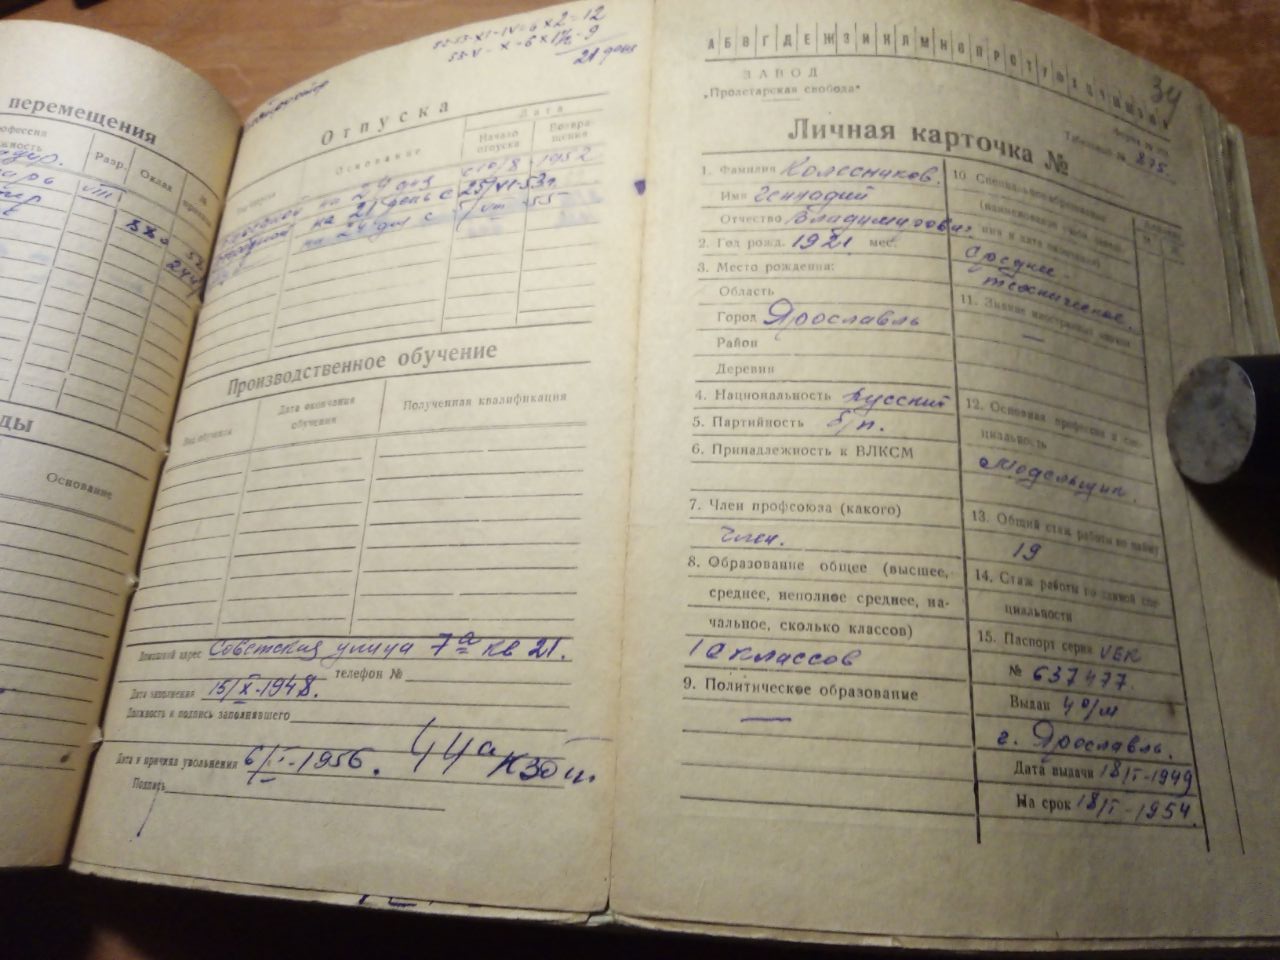 перемещения
Разр.
Оклад
VIII
Основание
52-53-XI-IV=6×2=12
53-V-X-6×1½-9
21 день
Отпуска
Основание
Дата
Начало отпуска
Возвращение
на 24 дня с 10/8-1952
на 21 день с 25/VI-53г.
на 24 дня с 5/VIII-55
Производственное обучение
Вид обучения
Дата окончания обучения
Полученная квалификация
Домашний адрес Советская улица 7а кв 21.
телефон №
Дата заполнения 15/X-1948.
Должность и подпись заполнявшего
Дата и причина увольнения 6/II-1956. 44а КЗОТ
Подпись
34
А Б В Г Д Е Ж З И К Л М Н О П Р С Т У Ф Х Ц Ч Ш Щ Э Я
ЗАВОД
„Пролетарская свобода"
Табельный № 875
Личная карточка №
1. Фамилия Колесников.
Имя Геннадий
Отчество Владимирович
2. Год рожд. 1921 мес.
3. Место рождения:
Область
Город Ярославль
Район
Деревня
4. Национальность Русский
5. Партийность б/п.
6. Принадлежность к ВЛКСМ
7. Член профсоюза (какого)
Член.
8. Образование общее (высшее,
среднее, неполное среднее, на-
чальное, сколько классов)
10 классов
9. Политическое образование
—
10. Специальное образование
Среднее
техническое.
11. Знание иностранных языков
—
12. Основная профессия и спе-
циальность
Модельщик.
13. Общий стаж работы по найму
19
14. Стаж работы по данной спе-
циальности
15. Паспорт серия
№ 637477.
Выдан 4 о/м
г. Ярославль.
Дата выдачи 18/I-1949
На срок 18/I-1954.